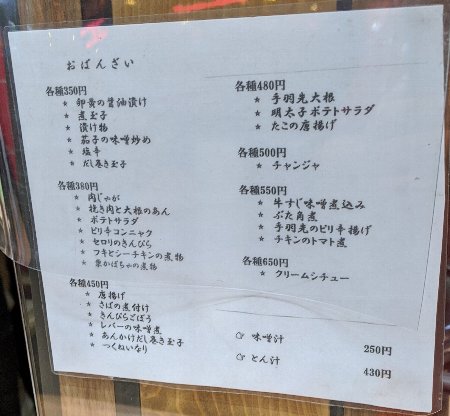 おばんざい
各種350円
★ 卵黄の醤油漬け
★ 煮玉子
★ 漬け物
★ 茄子の味噌炒め
★ 塩辛
★ だし巻き玉子
各種380円
★ 肉じゃが
★ 挽き肉と大根のあん
★ ポテトサラダ
★ ピリ辛コンニャク
★ セロリのきんぴら
★ フキとシーチキンの煮物
★ 栗かぼちゃの煮物
各種450円
★ 唐揚げ
★ さばの煮付け
★ きんぴらごぼう
★ レバーの味噌煮
★ あんかけだし巻き玉子
★ つくねいなり
各種480円
★ 手羽先大根
★ 明太子ポテトサラダ
★ たこの唐揚げ
各種500円
★ チャンジャ
各種550円
★ 牛すじ味噌煮込み
★ ぶた角煮
★ 手羽先のピリ辛揚げ
★ チキンのトマト煮
各種650円
★ クリームシチュー
☞ 味噌汁 250円
☞ とん汁 430円